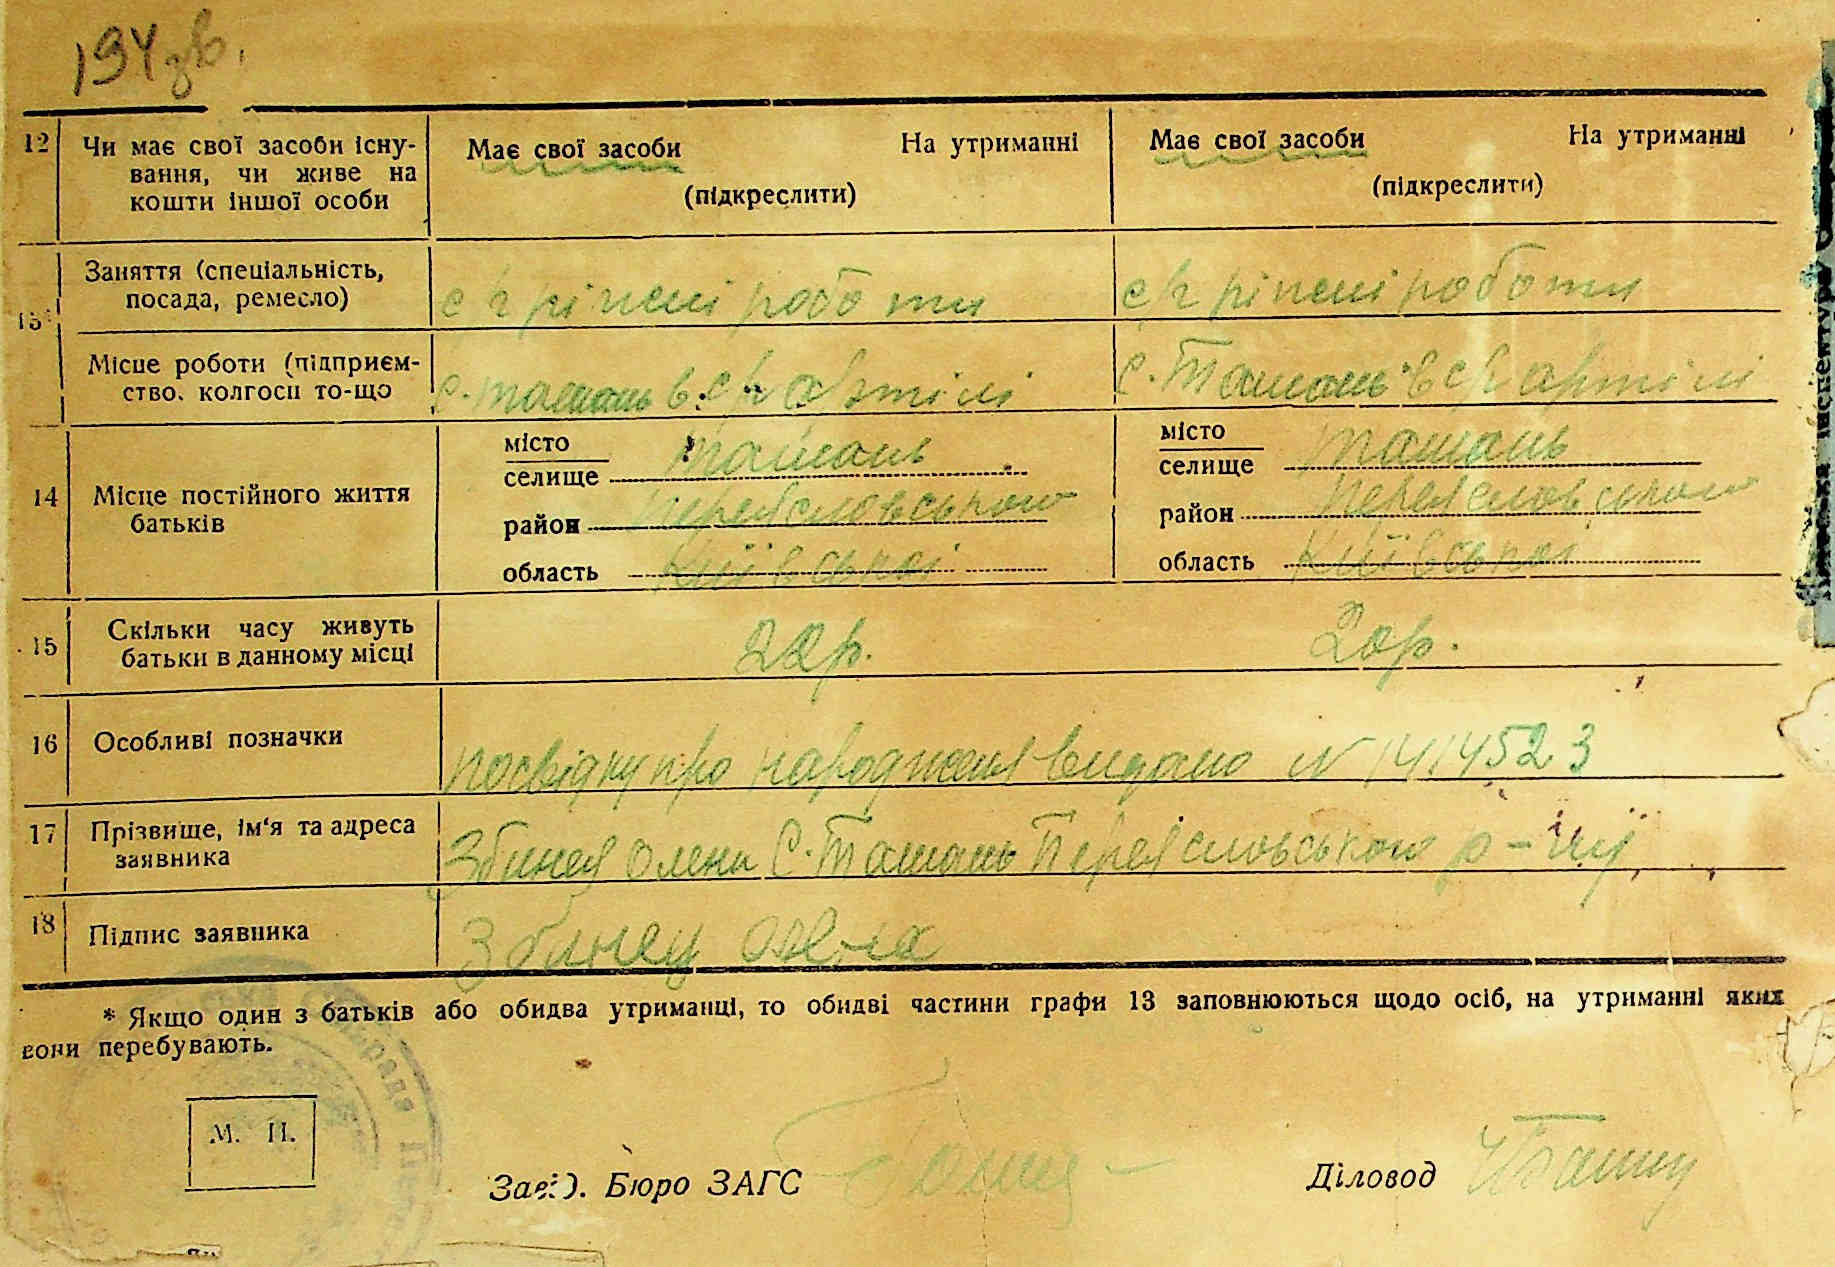 194 зв.
12 Чи має свої засоби існу- Має свої засоби На утриманні Має свої засоби На утриманні
вання, чи живе на (підкреслити) (підкреслити)
кошти іншої особи
13 Заняття (спеціальність, с/г ріпелі роботи с/г ріпелі роботи
посада, ремесло)
Місце роботи (підприєм- с. Ташань в с/г артілі с. Ташань в с/г артілі
ство, колгосп то-що
14 Місце постійного життя
батьків
місто Ташань місто Ташань
селище селище
район Переяславського район Переяславського
область Київської область Київської
15 Скільки часу живуть 20 р. 20 р.
батьки в данному місці
16 Особливі позначки посвідку про народження видано N 1414523
17 Прізвище, ім'я та адреса Збинец Олена С. Ташань Переяславського р-ну
заявника
18 Підпис заявника Збинец Олена
* Якщо один з батьків або обидва утриманці, то обидві частини графи 13 заповнюються щодо осіб, на утриманні яких
вони перебувають.
М. П.
Завід. Бюро ЗАГС Діловод